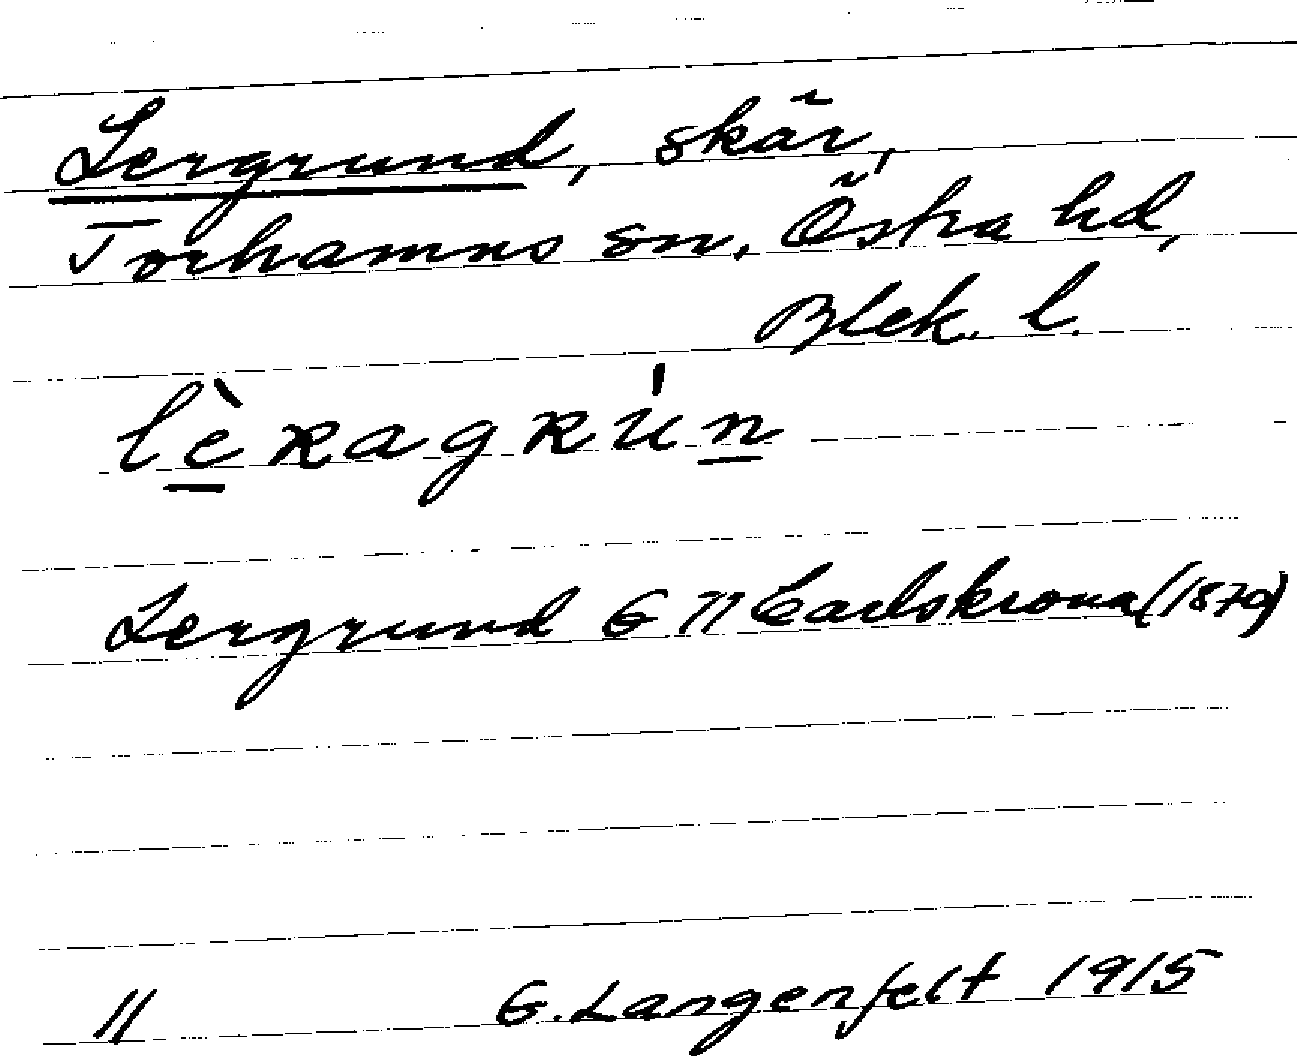 Lergrund, skär,
Torhamns sn. Östra hd,
Blek. l.
lèragrún
Lergrund G 11 Carlskrona (1870)
11 G. Langenfelt 1915